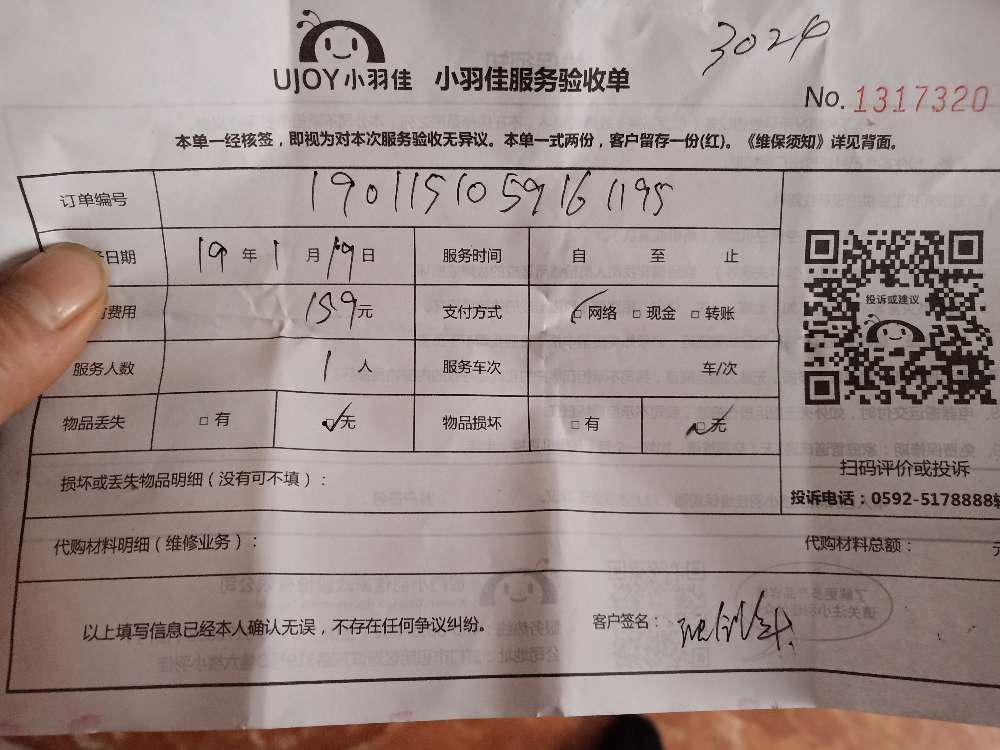 3024
UJOY小羽佳 小羽佳服务验收单
No. 1317320
本单一经核签，即视为对本次服务验收无异议。本单一式两份，客户留存一份(红)。《维保须知》详见背面。
订单编号 1901151059161195
日期 19 年 1 月 19 日 服务时间 自 至 止
费用 159元 支付方式 □网络 □现金 □转账
服务人数 1 人 服务车次 车/次
物品丢失 □有 □无 物品损坏 □有 □无
投诉或建议
扫码评价或投诉
投诉电话：0592-5178888
损坏或丢失物品明细（没有可不填）：
代购材料明细（维修业务）： 代购材料总额：
以上填写信息已经本人确认无误，不存在任何争议纠纷。 客户签名：